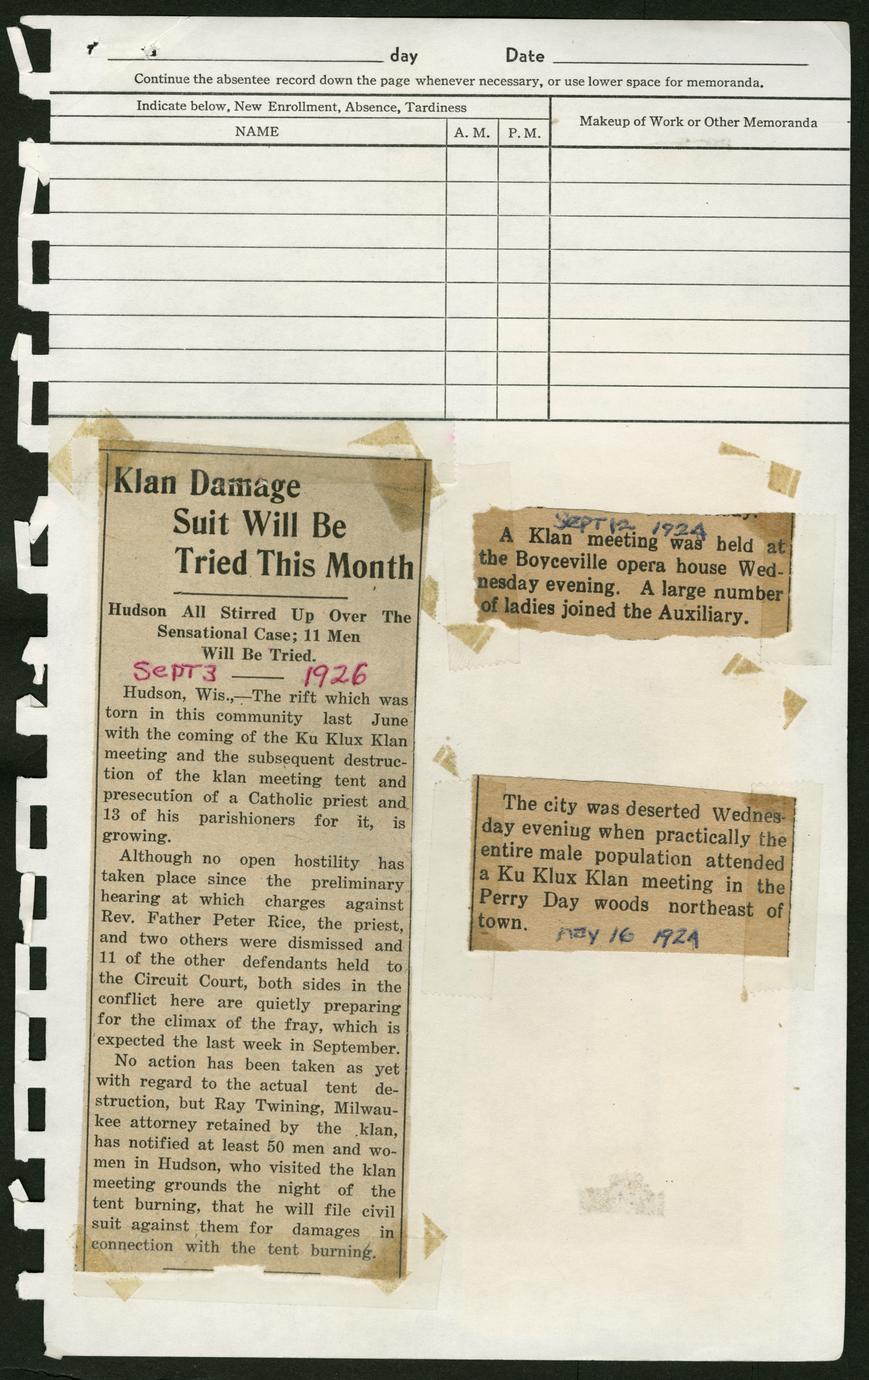 day Date
Continue the absentee record down the page whenever necessary, or use lower space for memoranda.
Indicate below, New Enrollment, Absence, Tardiness
Makeup of Work or Other Memoranda
NAME A. M. P. M.
Klan Damage
Suit Will Be
Tried This Month
Hudson All Stirred Up Over The
Sensational Case; 11 Men
Will Be Tried.
SEPT 3 1926
Hudson, Wis.,—The rift which was
torn in this community last June
with the coming of the Ku Klux Klan
meeting and the subsequent destruc-
tion of the klan meeting tent and
presecution of a Catholic priest and
13 of his parishioners for it, is
growing.
Although no open hostility has
taken place since the preliminary
hearing at which charges against
Rev. Father Peter Rice, the priest,
and two others were dismissed and
11 of the other defendants held to
the Circuit Court, both sides in the
conflict here are quietly preparing
for the climax of the fray, which is
expected the last week in September.
No action has been taken as yet
with regard to the actual tent de-
struction, but Ray Twining, Milwau-
kee attorney retained by the klan,
has notified at least 50 men and wo-
men in Hudson, who visited the klan
meeting grounds the night of the
tent burning, that he will file civil
suit against them for damages in
connection with the tent burning.
SEPT 12 1924
A Klan meeting was held at
the Boyceville opera house Wed-
nesday evening. A large number
of ladies joined the Auxiliary.
The city was deserted Wednes-
day evening when practically the
entire male population attended
a Ku Klux Klan meeting in the
Perry Day woods northeast of
town.
MAY 16 1924